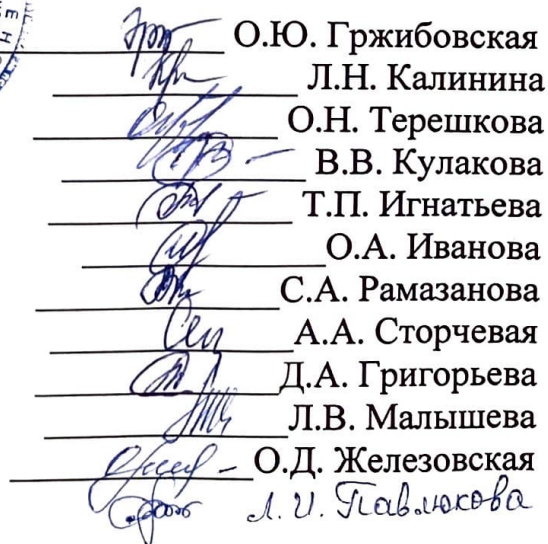 О.Ю. Гржибовская
Л.Н. Калинина
О.Н. Терешкова
В.В. Кулакова
Т.П. Игнатьева
О.А. Иванова
С.А. Рамазанова
А.А. Сторчевая
Д.А. Григорьева
Л.В. Малышева
О.Д. Железовская
Л. И. Павлюкова